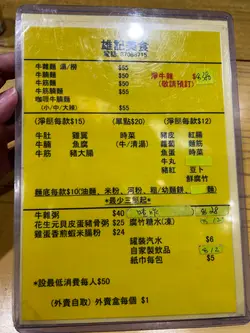 雄記美食
牛雜麵 湯/撈 $55
牛腩麵 $55
牛筋麵 $65
牛腩筋麵 $60
咖喱牛腩麵 $65
(小/中/大辣)
淨牛雜
(敬請預訂)
(淨餸每款$15) (單點$20) (淨餸每款$12)
牛肚 雞翼 時菜 豬皮 紅腸
牛腩 魚腐 (牛/清湯) 蘿蔔 雞腸
牛筋 豬大腸 魚蛋 時菜
牛丸
豬紅 豆卜
鮮腐竹
麵底每款$10(油麵、米粉、河粉、粗/幼麵餅、
*最少三餸起*
牛雜粥 $40
花生元貝皮蛋豬骨粥 $25 腐竹糖水(凍)
雞蛋香煎蝦米腸粉 $24
罐裝汽水 $6
自家製飲品
紙巾每包 $5
*設最低消費每人$50
(外賣自取) 外賣盒每個 $1